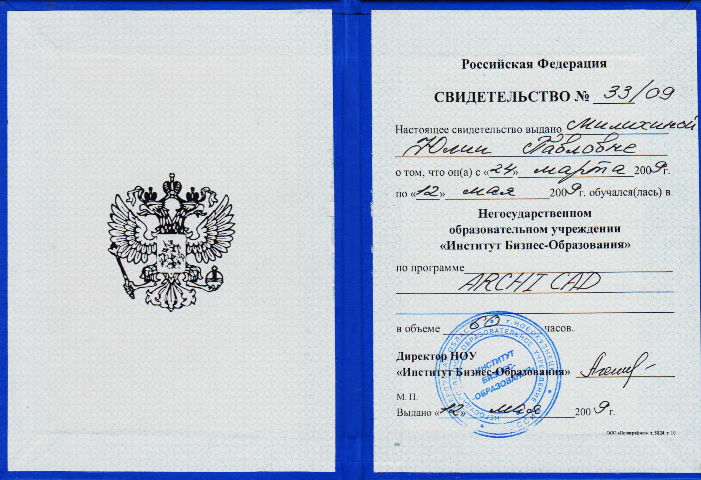 Российская Федерация
СВИДЕТЕЛЬСТВО № 33/09
Настоящее свидетельство выдано Милихиной
Юлии Павловне
о том, что он(а) с «24» марта 2009 г.
по «12» мая 2009 г. обучался(лась) в
Негосударственном
образовательном учреждении
«Институт Бизнес-Образования»
по программе
ARCHI CAD
в объеме 60 часов.
Директор НОУ
«Институт Бизнес-Образования»
ИНСТИТУТ
БИЗНЕС-
ОБРАЗОВАНИЯ
М. П.
Выдано «12» мая 2009 г.